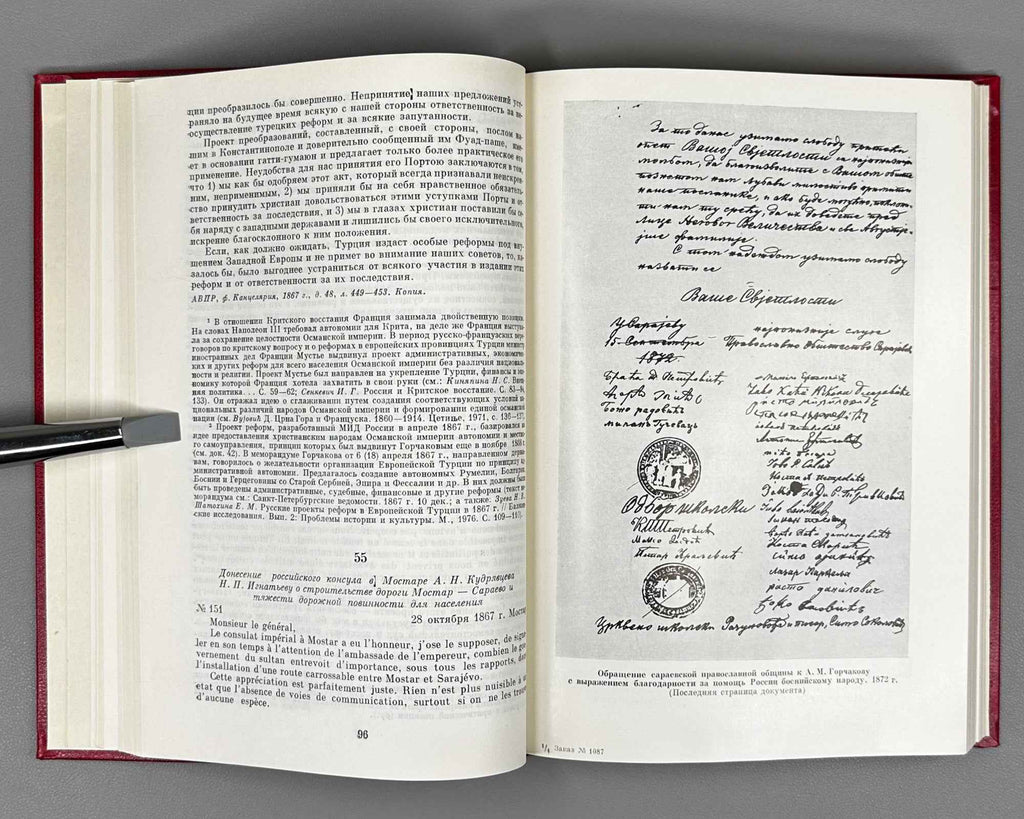 ции преобразилось бы совершенно. Непринятие наших предложений уст-
раняло на будущее время всякую с нашей стороны ответственность за не-
осуществление турецких реформ и за всякие запутанности.
Проект преобразований, составленный, с своей стороны, послом на-
шим в Константинополе и доверительно сообщенный им Фуад-паше, име-
ет в основании гатти-гумаюн и предлагает только более практическое его
применение. Неудобства для нас принятия его Портою заключаются в том,
что 1) мы как бы одобряем этот акт, который всегда признавали неискрен-
ним, неприменимым, 2) мы приняли бы на себя нравственное обязатель-
ство принудить христиан довольствоваться этими уступками Порты и от-
ветственность за последствия, и 3) мы в глазах христиан поставили бы се-
бя наряду с западными державами и лишились бы своего исключительного,
искренне благосклонного к ним положения.
Если, как должно ожидать, Турция издаст особые реформы под вну-
шением Западной Европы и не примет во внимание наших советов, то, ка-
залось бы, было выгоднее устраниться от всякого участия в издании этих
реформ и от ответственности за их последствия.
АВПР, ф. Канцелярия, 1867 г., д. 48, л. 449—453. Копия.
¹ В отношении Критского восстания Франция занимала двойственную позицию.
На словах Наполеон III требовал автономии для Крита, на деле же Франция выступа-
ла за сохранение целостности Османской империи. В период русско-французских пере-
говоров по критскому вопросу и о реформах в европейских провинциях Турции министр
иностранных дел Франции Мустье выдвинул проект административных, экономичес-
ких и других реформ для всего населения Османской империи без различия националь-
ности и религии. Проект Мустье был направлен на укрепление Турции, финансы и эко-
номику которой Франция хотела захватить в свои руки (см.: Киняпина Н. С. Внеш-
няя политика. . . С. 59—62; Сенкевич И. Г. Россия и Критское восстание. С. 83—94,
153). Он отражал идею о сглаживании путем создания соответствующих условий на-
циональных различий народов Османской империи и формировании единой османской
нации (см. Вујовић Д. Црна Гора и Француска. 1860—1914. Цетиње, 1971, с. 136—137).
² Проект реформ, разработанный МИД России в апреле 1867 г., базировался на
идее предоставления христианским народам Османской империи автономии и местно-
го самоуправления, принцип которых был выдвинут Горчаковым еще в ноябре 1866 г.
(см. док. 42). В меморандуме Горчакова от 6 (18) апреля 1867 г., направленном держа-
вам, говорилось о желательности организации Европейской Турции по принципу ад-
министративной автономии. Предлагалось создание автономных Румелии, Болгарии,
Боснии и Герцеговины со Старой Сербией, Эпира и Фессалии и др. В них должны были
быть проведены административные, судебные, финансовые и другие реформы (текст ме-
морандума см.: Санкт-Петербургские ведомости. 1867 г. 10 дек.; а также:
Шатохина Е. М. Русские проекты реформ в Европейской Турции в 1867 г. // Балкан-
ские исследования. Вып. 2: Проблемы истории и культуры. М., 1976. С. 109—110).
55
Донесение российского консула в Мостаре А. Н. Кудрявцева
Н. П. Игнатьеву о строительстве дороги Мостар — Сараево и
тяжести дорожной повинности для населения
№ 151
28 октября 1867 г. Мостар
Monsieur le général,
Le consulat impérial à Mostar a eu l'honneur, j'ose le supposer, de signa-
ler en son temps à l'attention de l'ambassade de l'empereur, combien le gou-
vernement du sultan entrevoit d'importance, sous tous les rapports, dans
l'installation d'une route carrossable entre Mostar et Sarajévo.
Cette appréciation est parfaitement juste. Rien n'est plus nuisible à un
état que l'absence de voies de communication, surtout si on ne les trouve
d'aucune espèce.
96
За то данас узимамо слободу
Вашој Свјетлости
молбом, да благоизволите с Вашом
познатом нам љубави милостиво примити
наше посланике, и ако буде могуће,
ти нам ту срећу, да их доведете пред
лице Његовог Величества и све Августјеј-
шје фамилије.
С том надеждом узимамо слободу
назвати се
Ваше Свјетлости
У Сарајеву
15. Септембра
1872.
најпонизније слуге
Православно Обштество Сарајевско
Браћа Д. Петровић
Божо радовић
Одбор школски
Петровић
лазар
ристо данилович
Црквено школски
Обращение сараевской православной общины к А. М. Горчакову
с выражением благодарности за помощь России боснийскому народу. 1872 г.
(Последняя страница документа)
¹/₄ Заказ № 1087